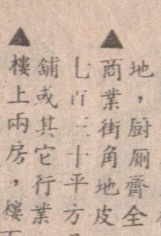 地，厨厠齊全
▲商業街角地皮
七百三十平方
舖或其它行業
▲樓上兩房，樓